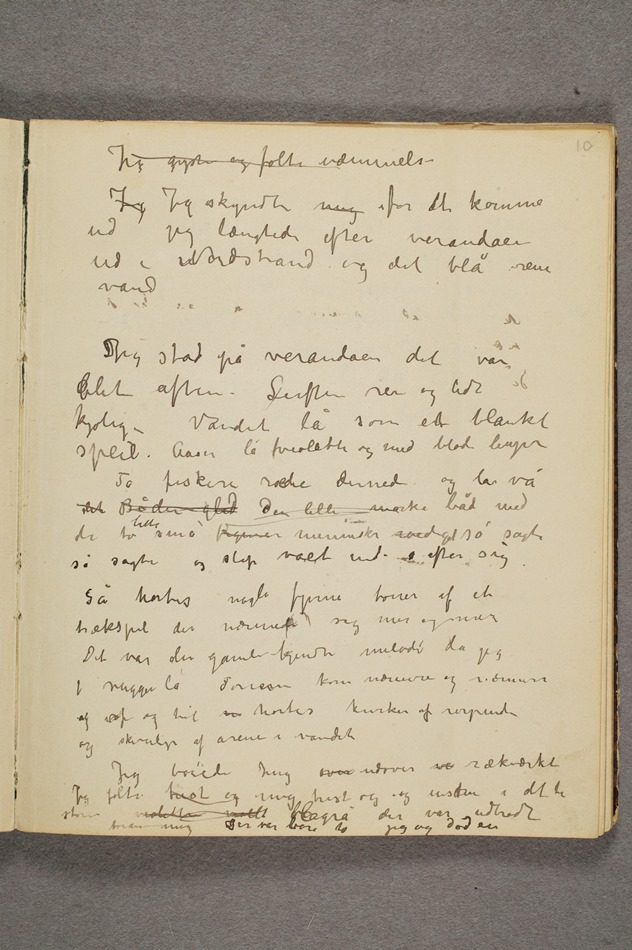 10
Jeg gyste og følte væmmels
Jeg Jeg skyndte mig for at komme
ud jeg længtede efter verandaen
ud i Nordstrand og det blå rene
vand
Jeg stod på verandaen det var
blet aften. Luften ren og lidt
kjølig – Vandet lå som et blankt
speil. Åasen lå fiolette og med bløde linjer
To fiskere rode derned og lar vå
det Båden gled Den lille mørke båd med
de to lille små figurer mennisker så sagte
så sagte og slap vadt ud efter sig.
Så hørtes nogle fjerne toner af et
trækspil der nærmed sig mer og mer
Det var den gamle kjendte melodi da jeg
I vugge lå Tonerne kom nærmere og nærmere
og af og til hørtes knirken af
og skvulp af årene i vandet
Jeg bøiede mig over rækværket
Jeg følte træt og mig trist og og ustø i det
store violette blågrå der var udbredt
mig Der var bare to jeg og døden